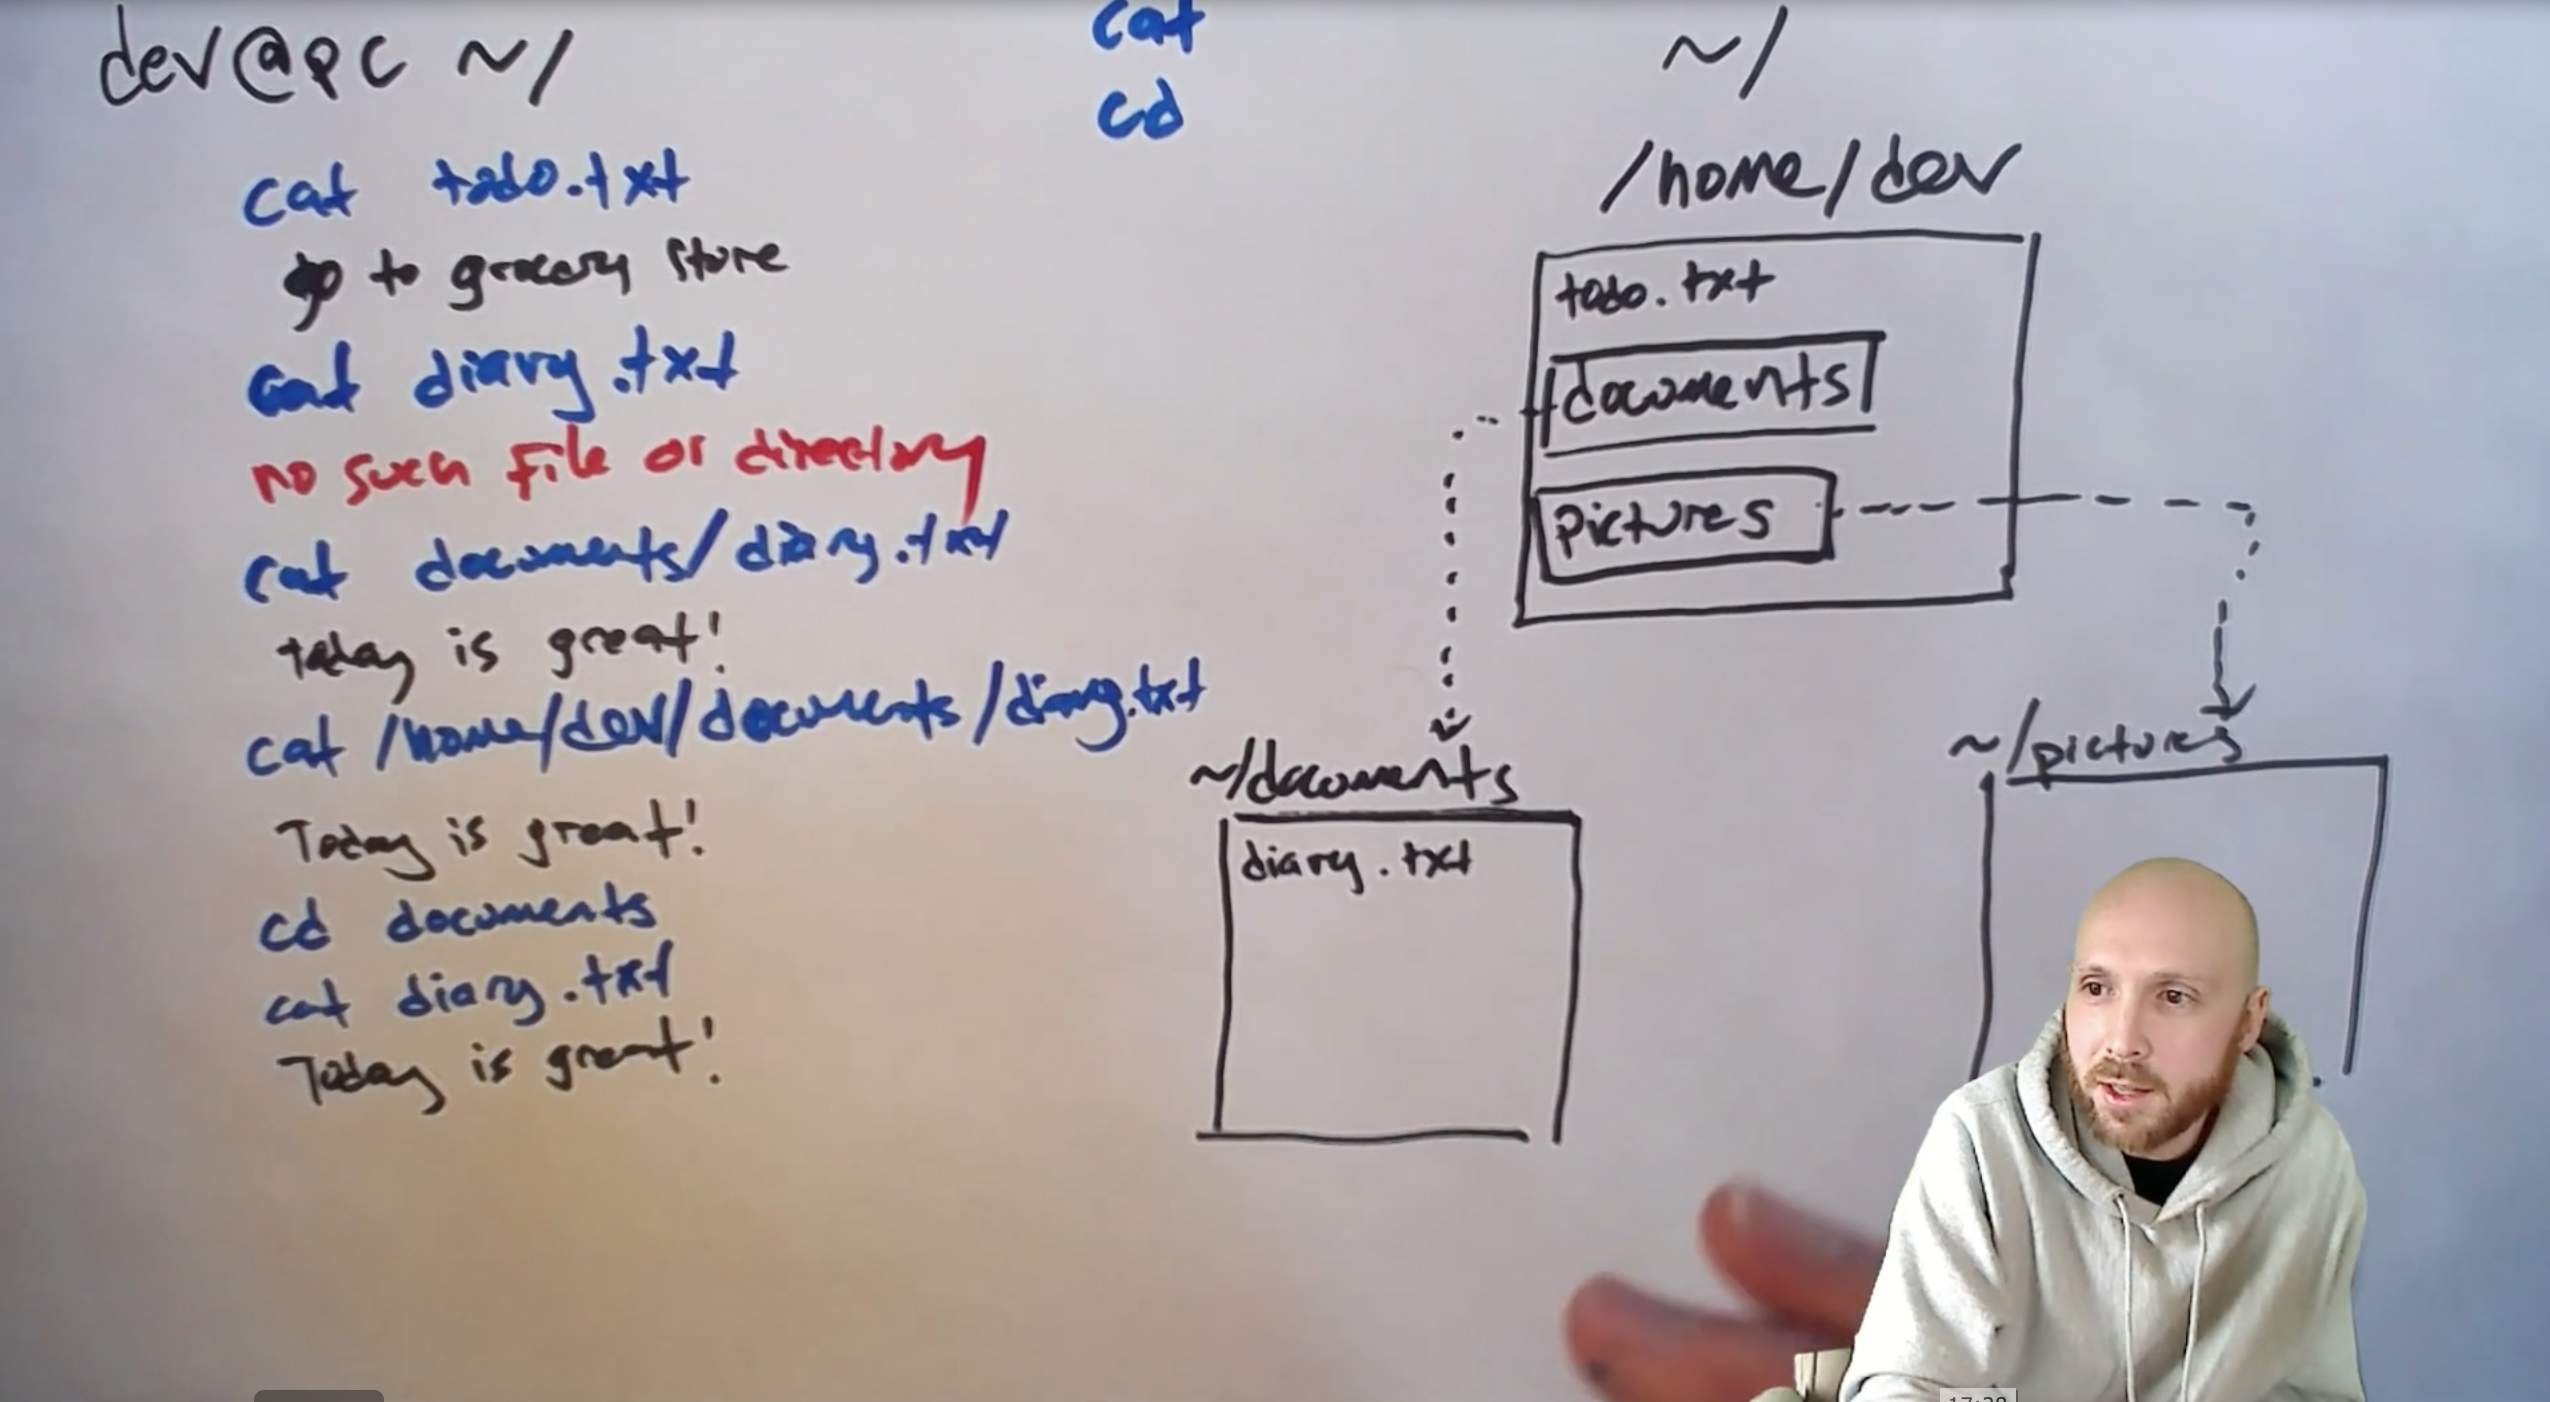 dev@pc ~/
cat todo.txt
go to grocery store
cat diary.txt
no such file or directory
cat documents/diary.txt
today is great!
cat /home/dev/documents/diary.txt
Today is great!
cd documents
cat diary.txt
Today is great!
cat
cd
~/
/home/dev
todo.txt
documents
pictures
~/documents
diary.txt
~/pictures